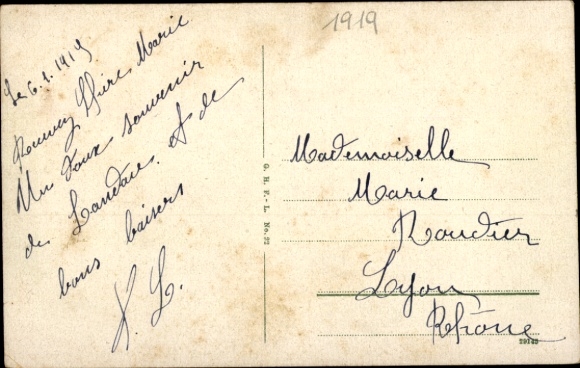 1919
Le 6.1.1919
Marie
Un doux souvenir
de Landau. et de
bons baisers
G. H. F.-L. No. 22
Mademoiselle
Marie
Roudier
Lyon
Rhône
29142